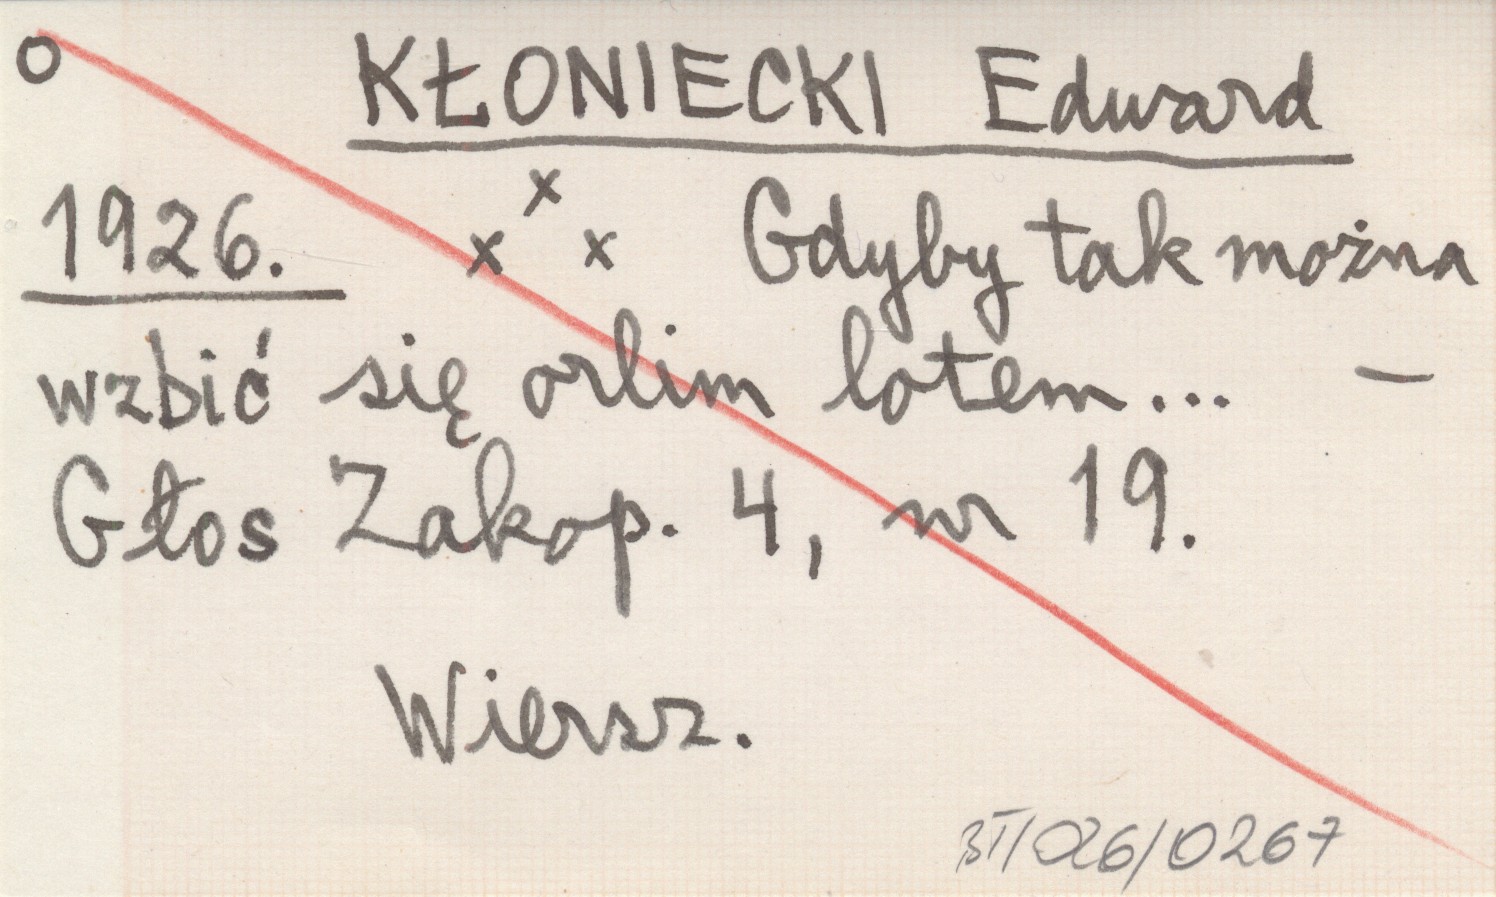 o KŁONIECKI Edward
1926. x x x Gdyby tak można
wzbić się orlim lotem... –
Głos Zakop. 4, nr 19.
Wiersz.
BT/026/0267